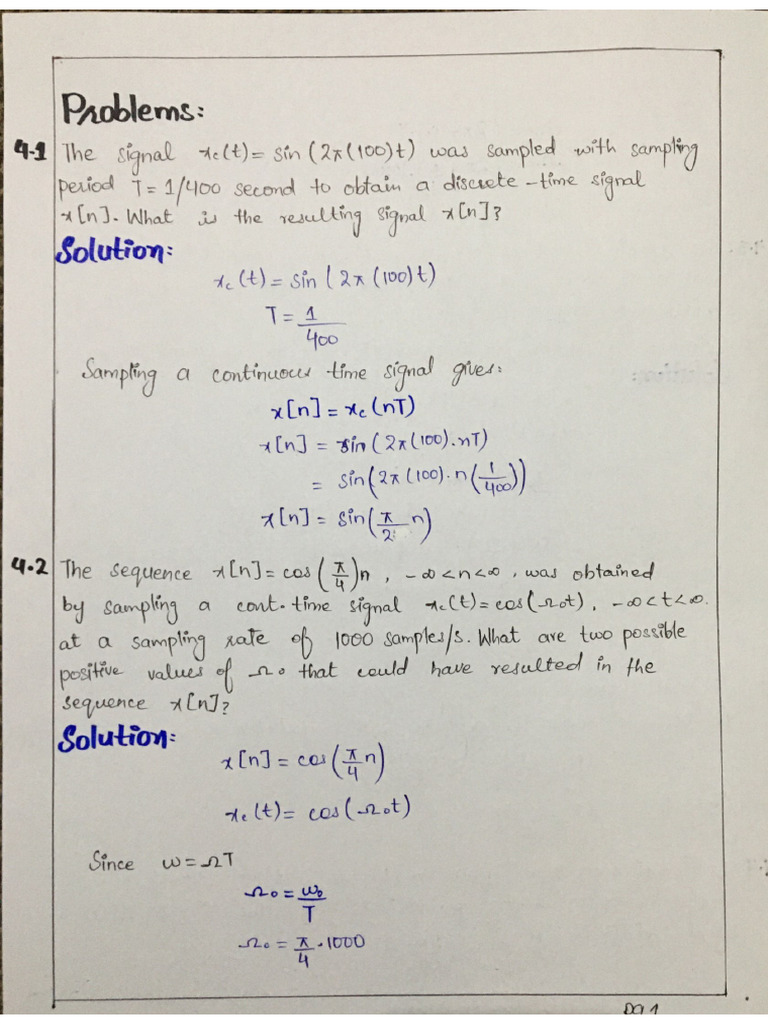 Problems:
4.1 The signal xc(t) = sin (2π(100)t) was sampled with sampling
period T = 1/400 second to obtain a discrete-time signal
x[n]. What is the resulting signal x[n]?
Solution:
xc(t) = sin (2π(100)t)
T = 1/400
Sampling a continuous time signal gives:
x[n] = xc(nT)
x[n] = sin(2π(100).nT)
= sin(2π(100).n(1/400))
x[n] = sin(π/2 n)
4.2 The sequence x[n] = cos(π/4)n, -∞<n<∞, was obtained
by sampling a cont. time signal xc(t) = cos(Ω0t), -∞<t<∞.
at a sampling rate of 1000 samples/s. What are two possible
positive values of Ω0 that could have resulted in the
sequence x[n]?
Solution:
x[n] = cos(π/4 n)
xc(t) = cos(Ω0t)
Since ω = ΩT
Ω0 = ω0/T
Ω0 = π/4 . 1000
pg 1